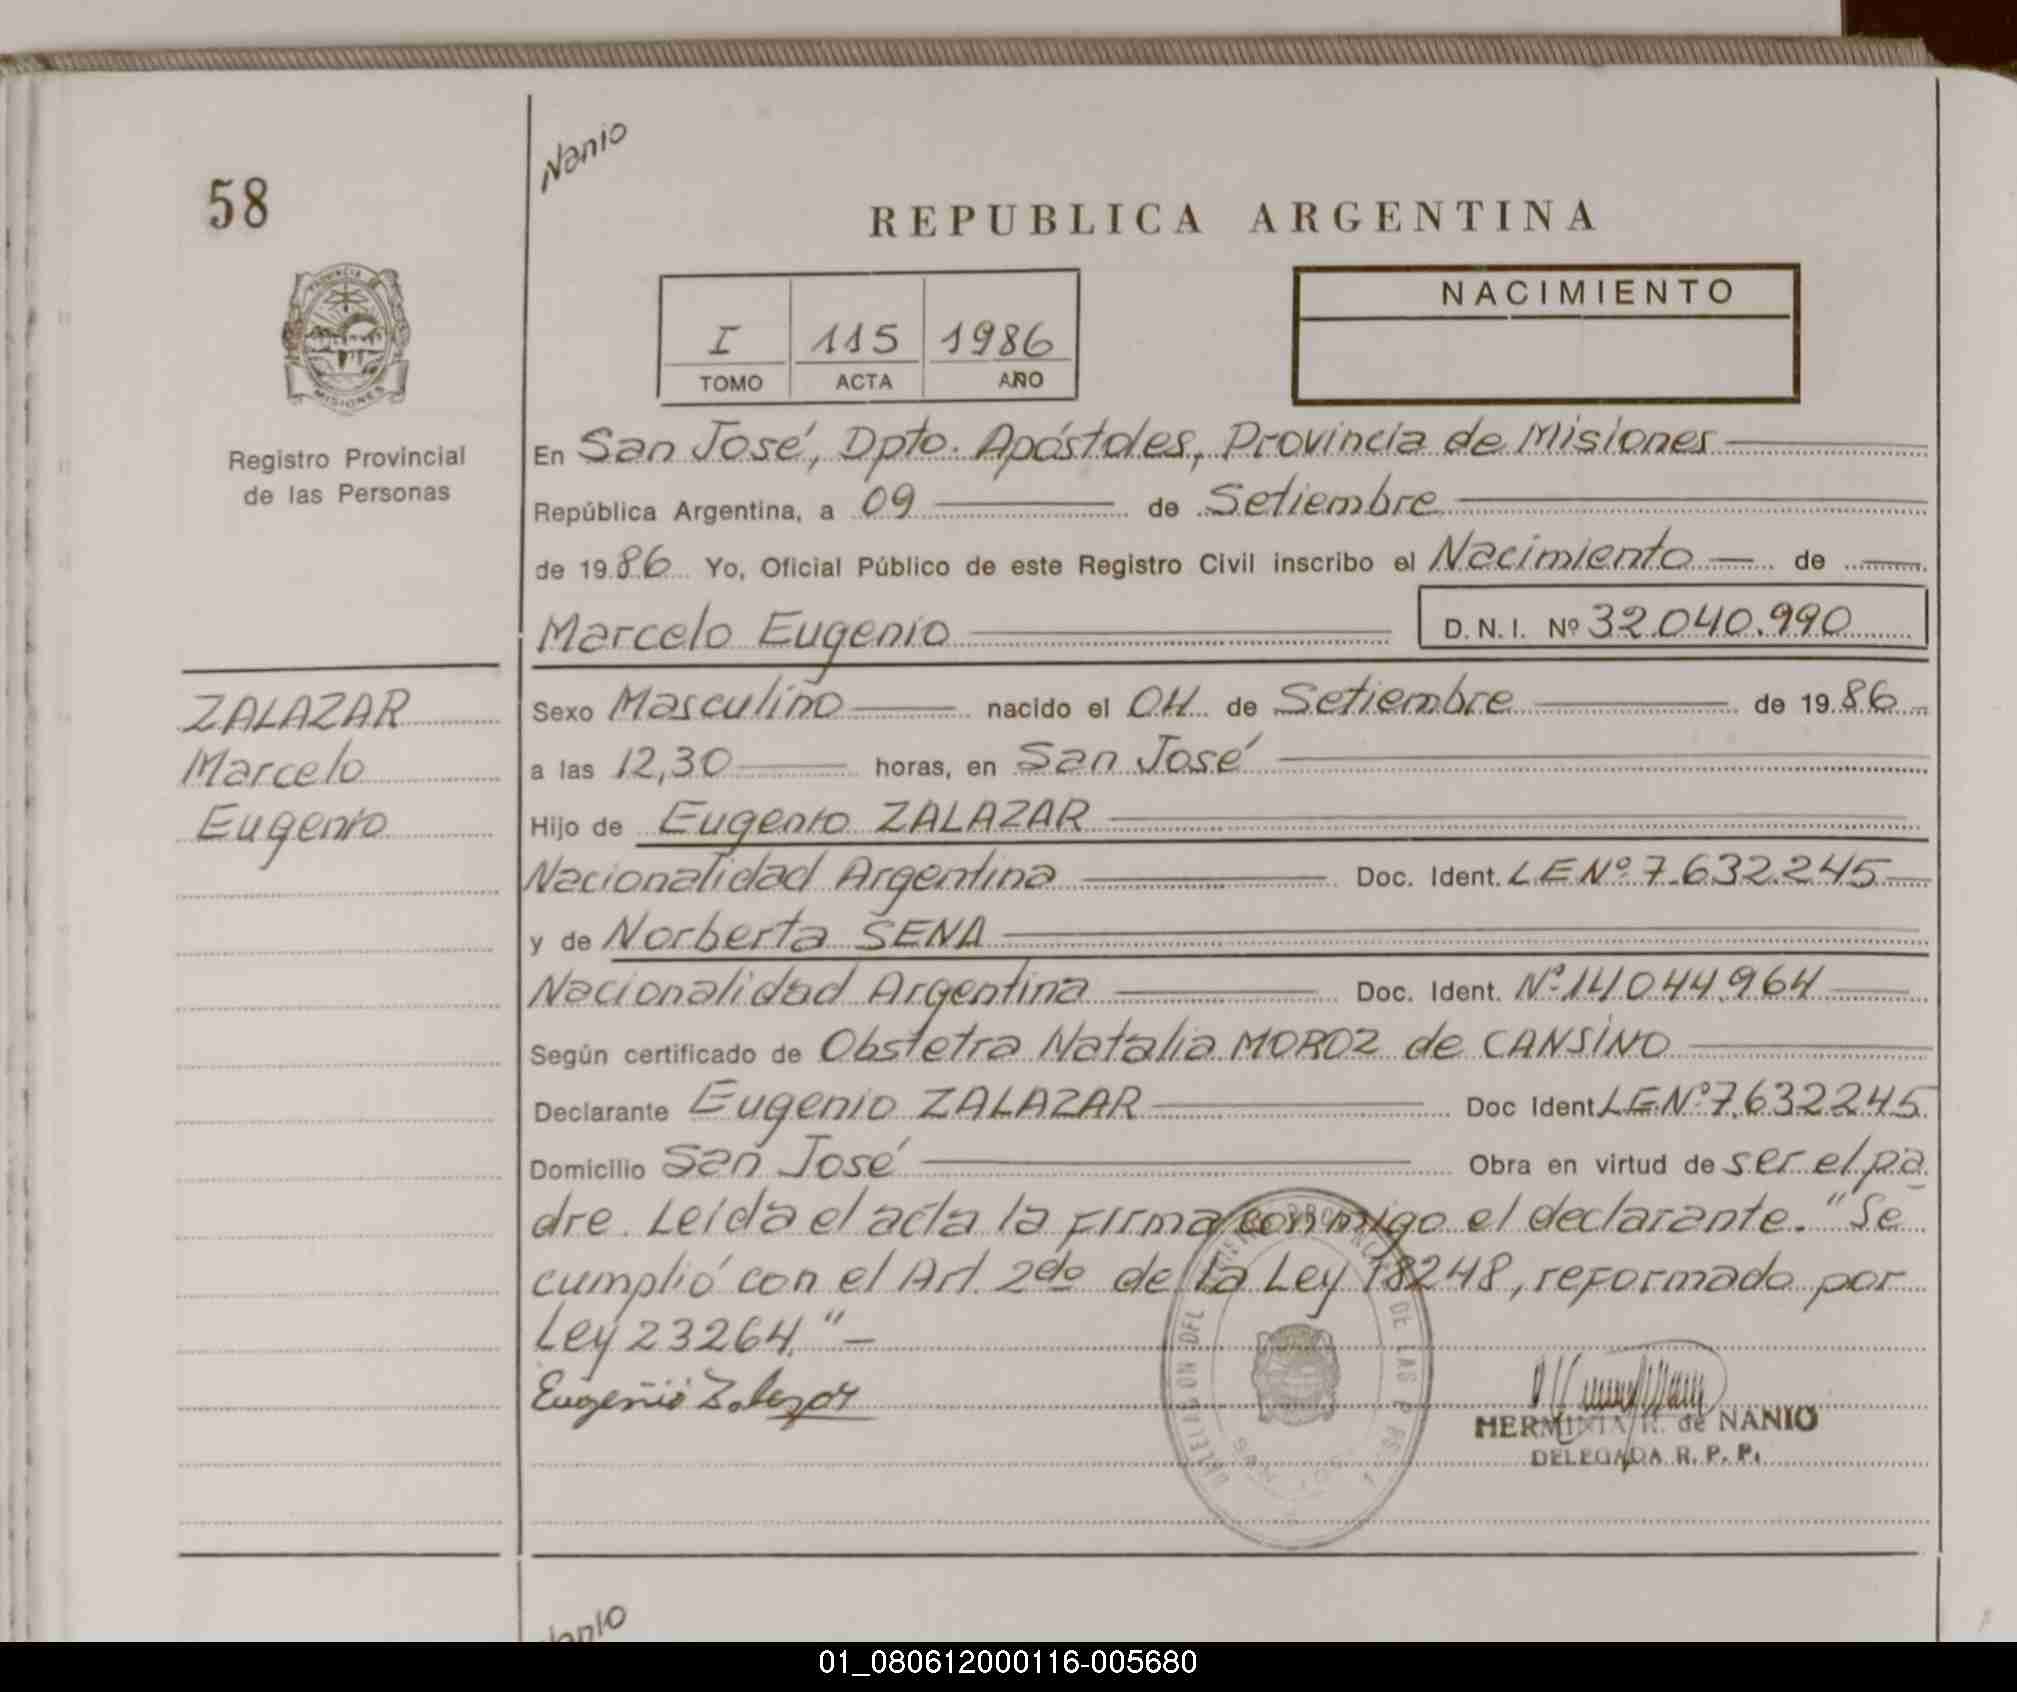 Nanio
58
REPUBLICA ARGENTINA
NACIMIENTO
I 115 1986
TOMO ACTA AÑO
PROVINCIA
MISIONES
Registro Provincial
de las Personas
En San José, Dpto. Apóstoles, Provincia de Misiones
República Argentina, a 09 de Setiembre
de 1986 Yo, Oficial Público de este Registro Civil inscribo el Nacimiento de
Marcelo Eugenio D.N.I. Nº 32.040.990
ZALAZAR
Marcelo
Eugenio
Sexo Masculino nacido el 04 de Setiembre de 1986
a las 12,30 horas, en San José
Hijo de Eugenio ZALAZAR
Nacionalidad Argentina Doc. Ident. LE Nº 7.632.245
y de Norberta SENA
Nacionalidad Argentina Doc. Ident. Nº 14044.964
Según certificado de Obstetra Natalia MOROZ de CANSINO
Declarante Eugenio ZALAZAR Doc Ident LE Nº 7.632245
Domicilio San José Obra en virtud de ser el pa
dre. Leída el acta la firma conmigo el declarante. "Se
cumplió con el Art. 2do de la Ley 18248, reformado por
Ley 23264."-
Eugenio Zalazar
HERMINIA R. de NANIO
DELEGADA R. P. P.
Nanio
01_080612000116-005680